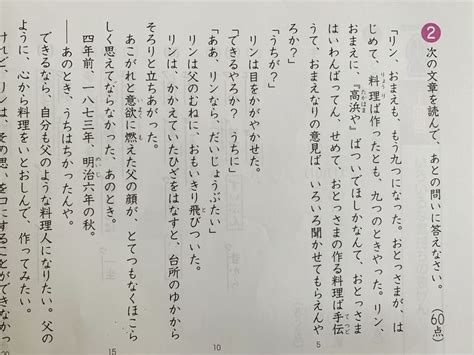 2 次の文章を読んで、あとの問いに答えなさい。(60点)
「リン、おまえも、もう九つになった。おとっさまが、は
じめて、料理ば作ったとも、九つのときやった。リン、
高浜に、『高浜や』ばついでほしかなんて、おとっさま
はいわんばってん、せめて、おとっさまの作る料理ば手伝
うて、おまえなりの意見ば、いろいろ聞かせてもらえんや
ろか?」
「うちが?」
リンは目をかがやかせた。
「できるやろか? うちに」
「ああ、リンなら、だいじょうぶたい」
リンは父のむねに、おもいきり飛びついた。
リンは、かかえていたひざをはなすと、台所のゆかから
そろりと立ちあがった。
あこがれと意欲に燃えた父の顔が、とてつもなくほこら
しく思えてならなかった、あのとき。
四年前、一八七三年、明治六年の秋。
――あのとき、うちはちかったんや。
できるなら、自分も父のような料理人になりたい。父の
ように、心から料理をいとおしんで、作ってみたい。
けれど、リンは、その思いを口にすることができなかっ
5
10
15
20